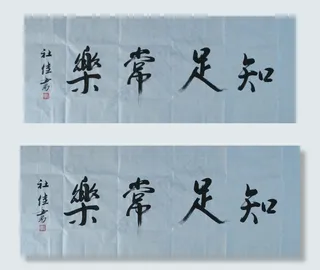 知足常樂
社佳書
知足常樂
社佳書